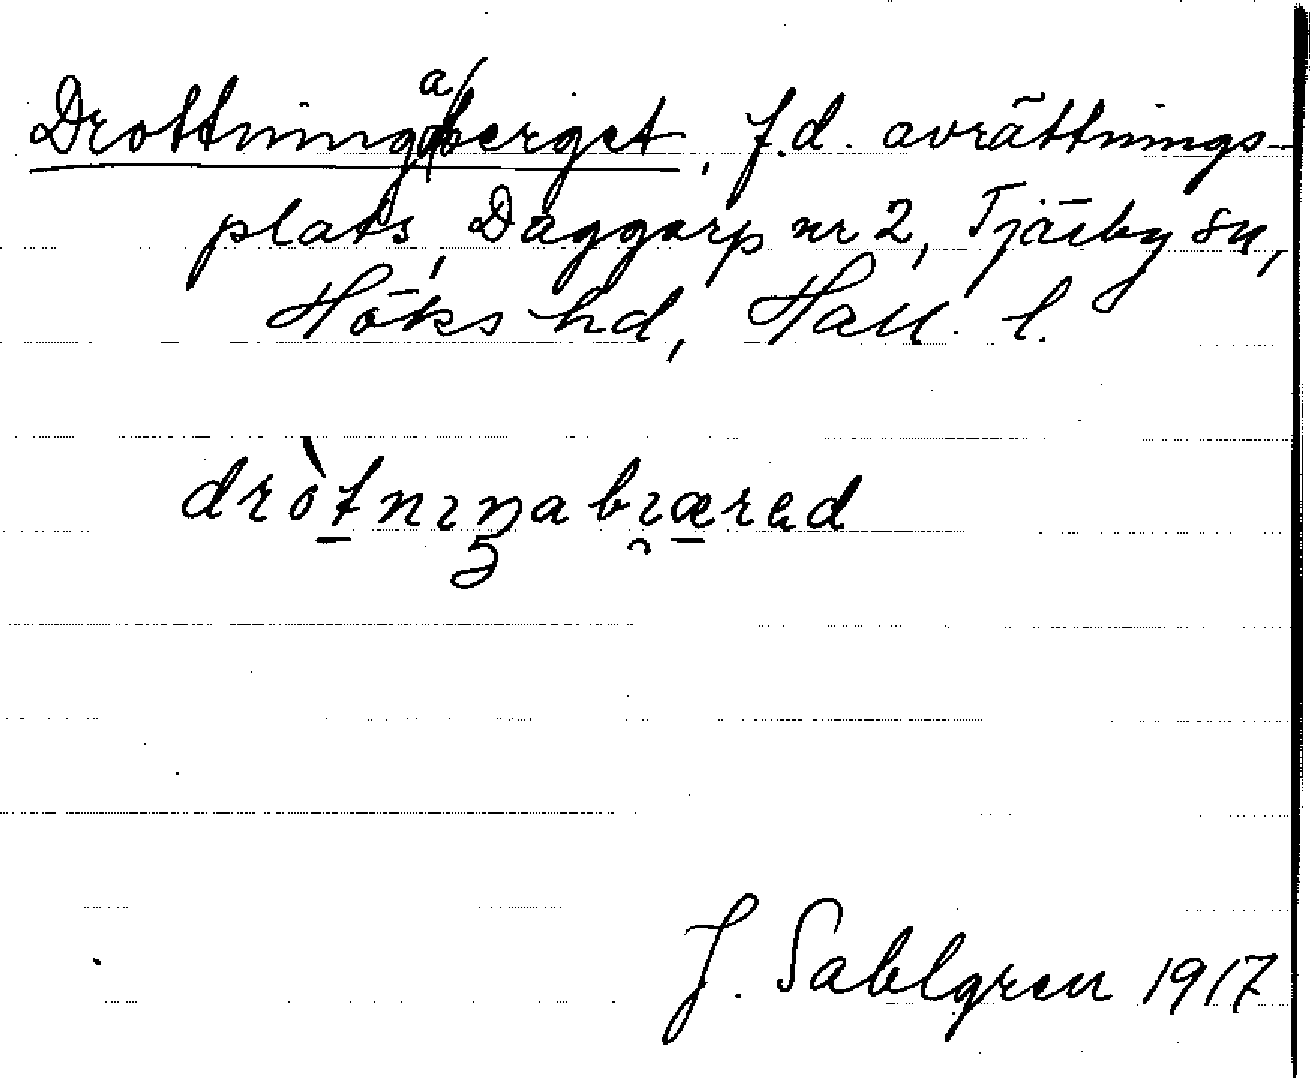 Drottningaberget, f.d. avrättnings-
plats, Daggarp nr 2, Tjärby sn,
Höks hd, Hall. l.
dròtnıŋabı̯æred
J. Sahlgren 1917